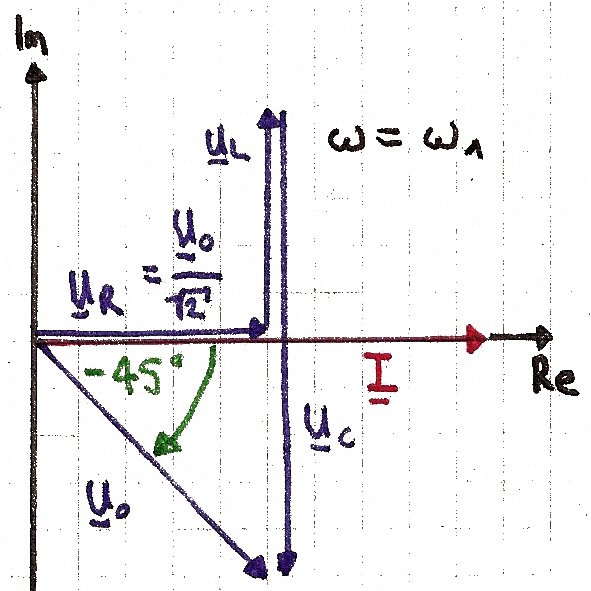 Im
U_L
ω = ω₁
U_R = U_0/√2
-45°
I
Re
U_C
U_0